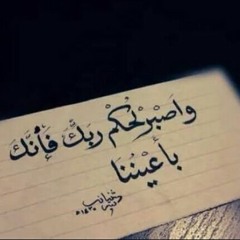 واصْبِرْ لِحُكْمِ رَبِّكَ فَإِنَّكَ
بِأَعْيُنِنَا